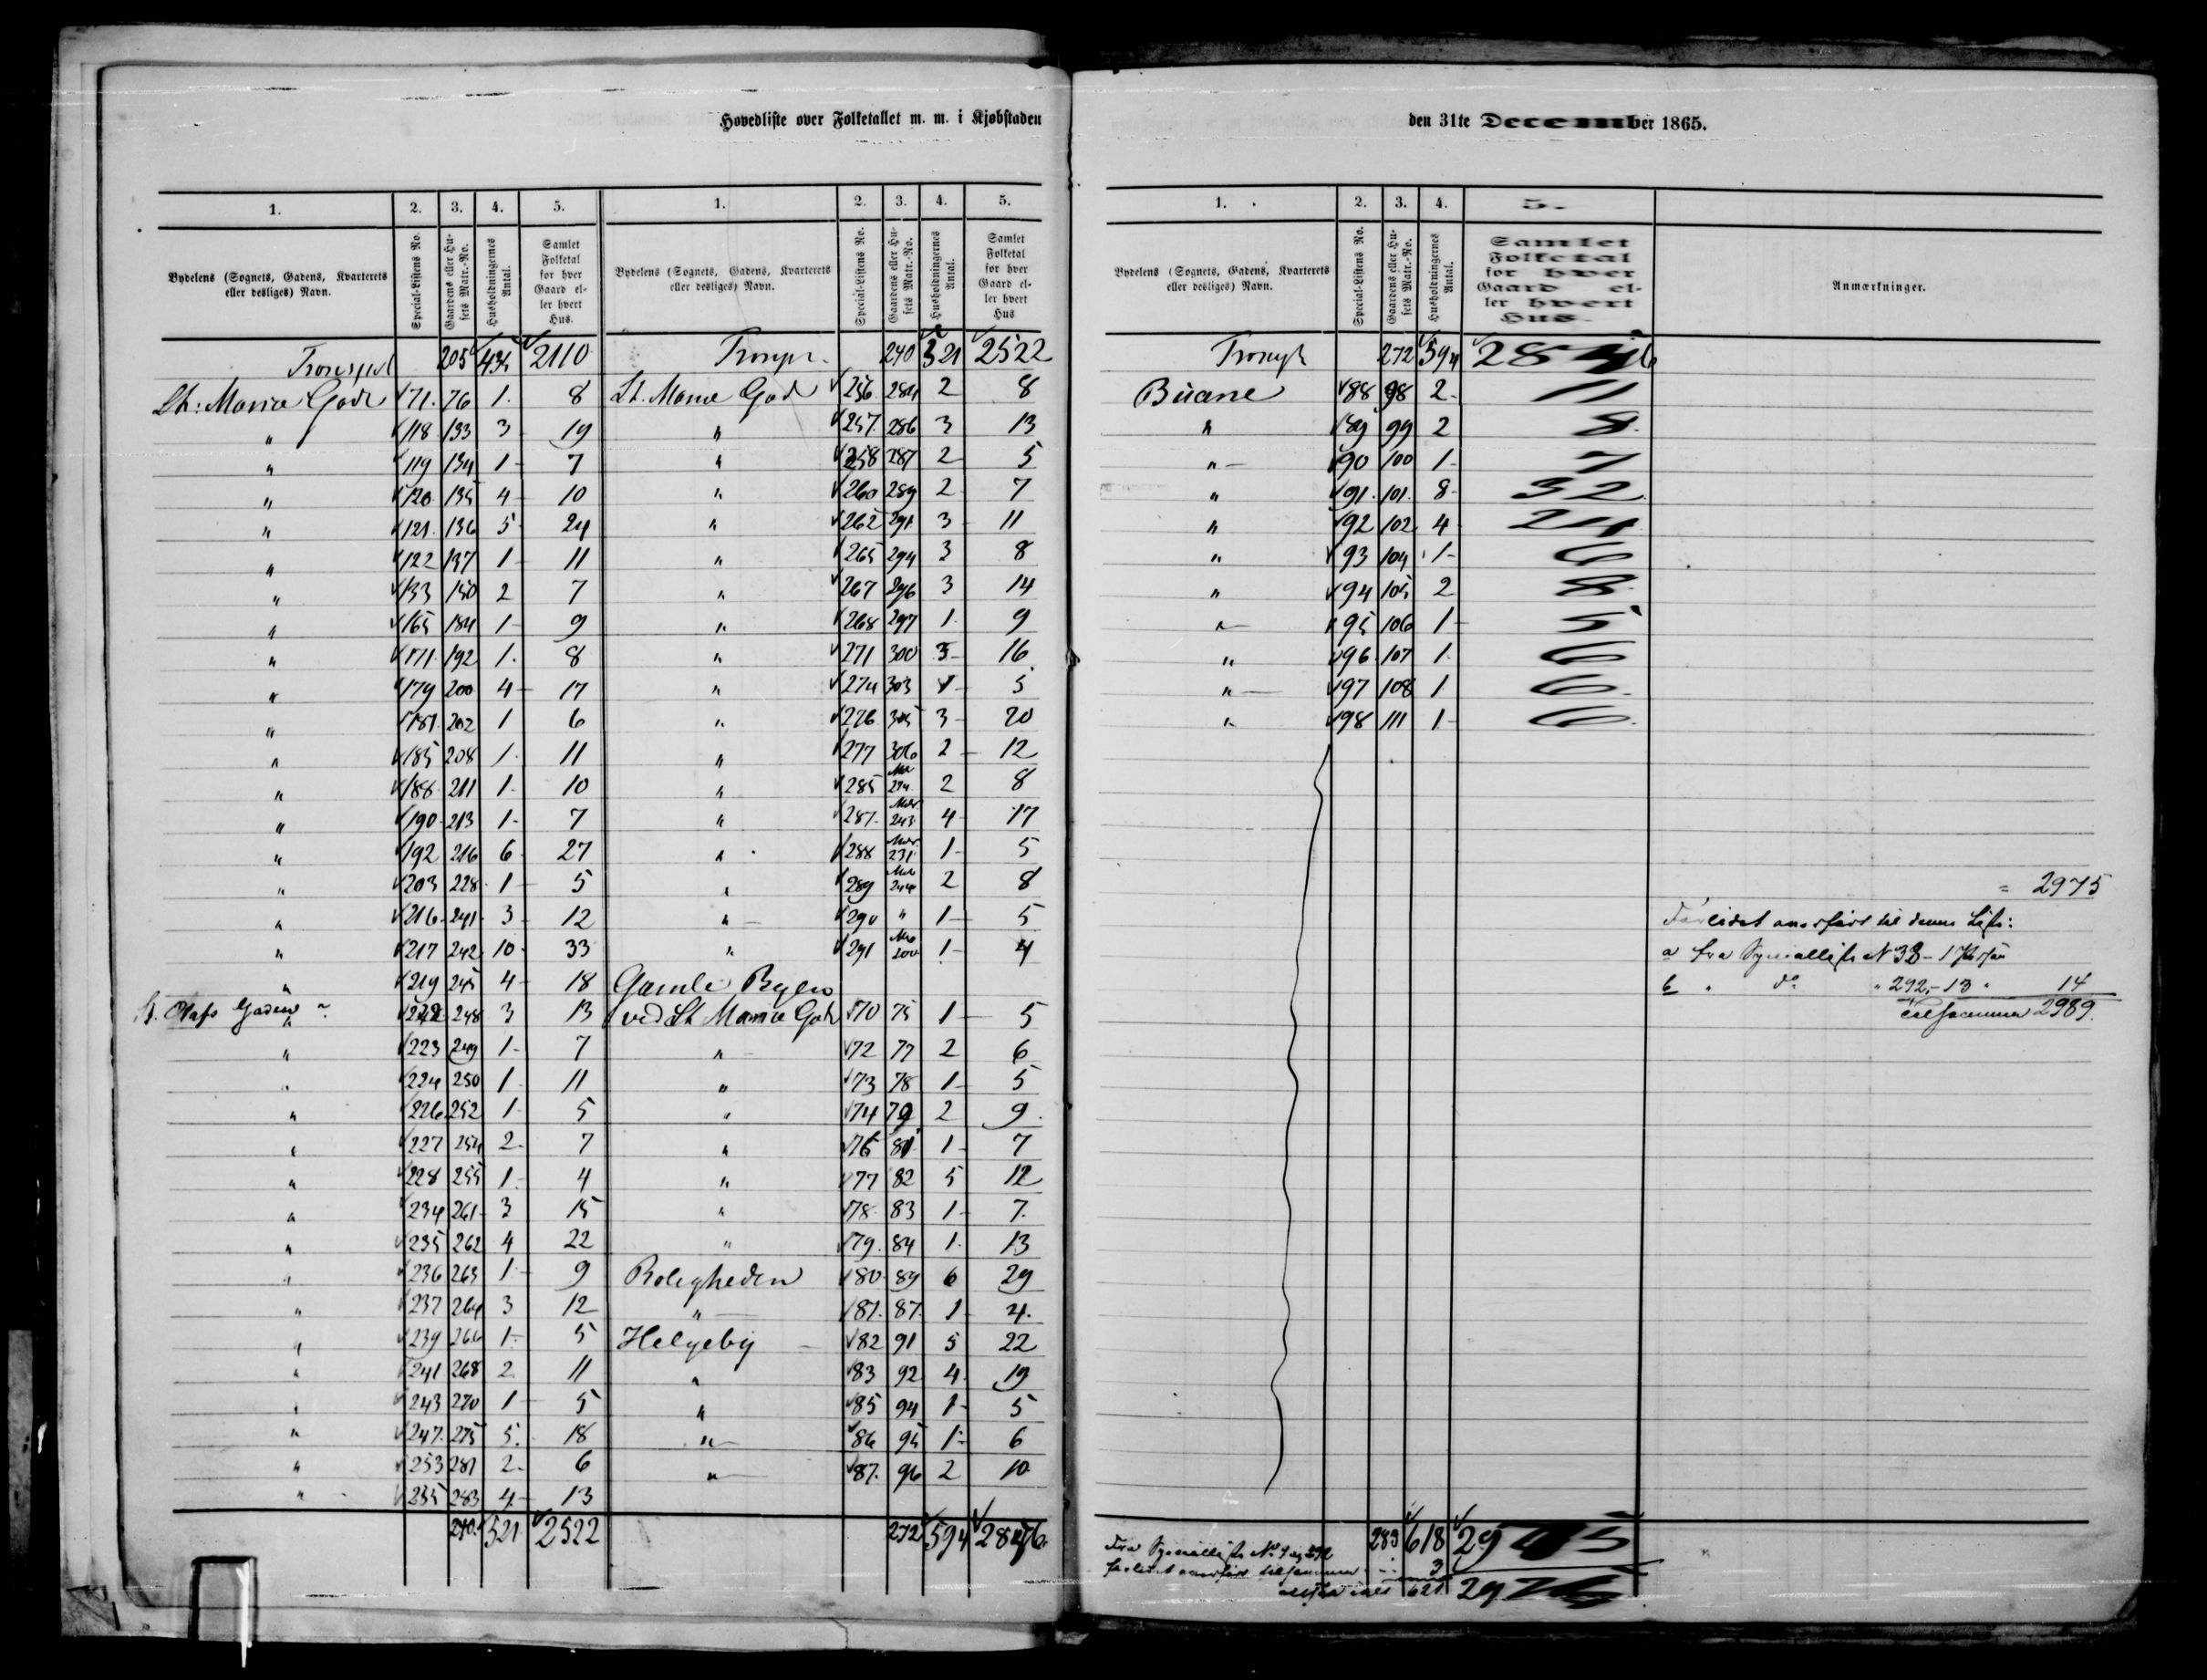 Hovedliste over Folketallet m. m. i Kjøbstaden
1. 2. 3. 4. 5.
Bydelens (Sognets, Gadens, Kvarterets eller desliges) Navn. Special-Listens No. Gaardens eller Husets Matr.-No. Husholdningernes Antal. Samlet Folketal for hver Gaard eller hvert Hus.
205 434 2110
St: Marie Gade 71. 76 1. 8
" 118 133 3 19
" 119 134 1 7
" 120 135 4 10
" 121 136 5 24
" 122 137 1 11
" 133 150 2 7
" 165 184 1 9
" 171 192 1. 8
" 179 200 4 17
" 181 202 1 6
" 185 208 1 11
" 188 211 1 10
" 190 213 1 7
" 192 216 6 27
" 203 228 1 5
" 216 241 3 12
" 217 242 10 33
" 219 245 4 18
St. Olafs Gaden " 222 248 3 13
" 223 249 1 7
" 224 250 1 11
" 226 252 1 5
" 227 254 2 7
" 228 255 1 4
" 234 261 3 15
" 235 262 4 22
" 236 263 1 9
" 237 264 3 12
" 239 266 1 5
" 241 268 2 11
" 243 270 1 5
" 247 275 5. 18
" 253 281 2 6
" 255 283 4 13
240. 521 2522
1. 2. 3. 4. 5.
Bydelens (Sognets, Gadens, Kvarterets eller desliges) Navn. Special-Listens No. Gaardens eller Husets Matr.-No. Husholdningernes Antal. Samlet Folketal for hver Gaard eller hvert Hus
240 521 2522
St. Marie Gade 256 284 2 8
" 257 286 3 13
" 258 287 2 5
" 260 289 2 7
" 262 291 3 11
" 265 294 3 8
" 267 296 3 14
" 268 297 1 9
" 271 300 3 16
" 274 303 1 5
" 276 305 3 20
" 277 306 2 12
" 285 2 8
" 287 243 4 17
" 288 231 1 5
" 289 244 2 8
" 290 " 1 5
" 291 200 1 4
Gamle Byen
ved St Marie Gade 70 75 1 5
" 72 77 2 6
" 73 78 1 5
" 74 79 2 9
" 76 81 1 7
" 77 82 5 12
" 78 83 1 7.
" 79. 84 1. 13
Roligheden 80 89 6 29
" 81. 87. 1 4.
Helgeby 82 91 5 22
" 83 92 4 19
" 85 94 1 5
" 86 95 1 6
" 87. 96 2 10
272 594
den 31te December 1865.
1. 2. 3. 4. 5.
Bydelens (Sognets, Gadens, Kvarterets eller desliges) Navn. Special-Listens No. Gaardens eller Husets Matr.-No. Husholdningernes Antal. Samlet Folketal for hver Gaard eller hvert Hus. Anmærkninger.
272 594
Buane 88 98 2 11
" 89 99 2 8
" 90 100 1 7
" 91. 101. 8 32
" 92 102 4 24
" 93 104 1 6
" 94 105 2 8
" 95 106 1 5
" 96 107 1 6
" 97 108 1 6
" 98 111 1 6
= 2975
til denne Liste:
a fra Specialliste N 38 - 1 Person
b " do " 292, - 13 " 14
Tilsammen 2989.
283 618
Fra Specialliste
tilsammen 3
621